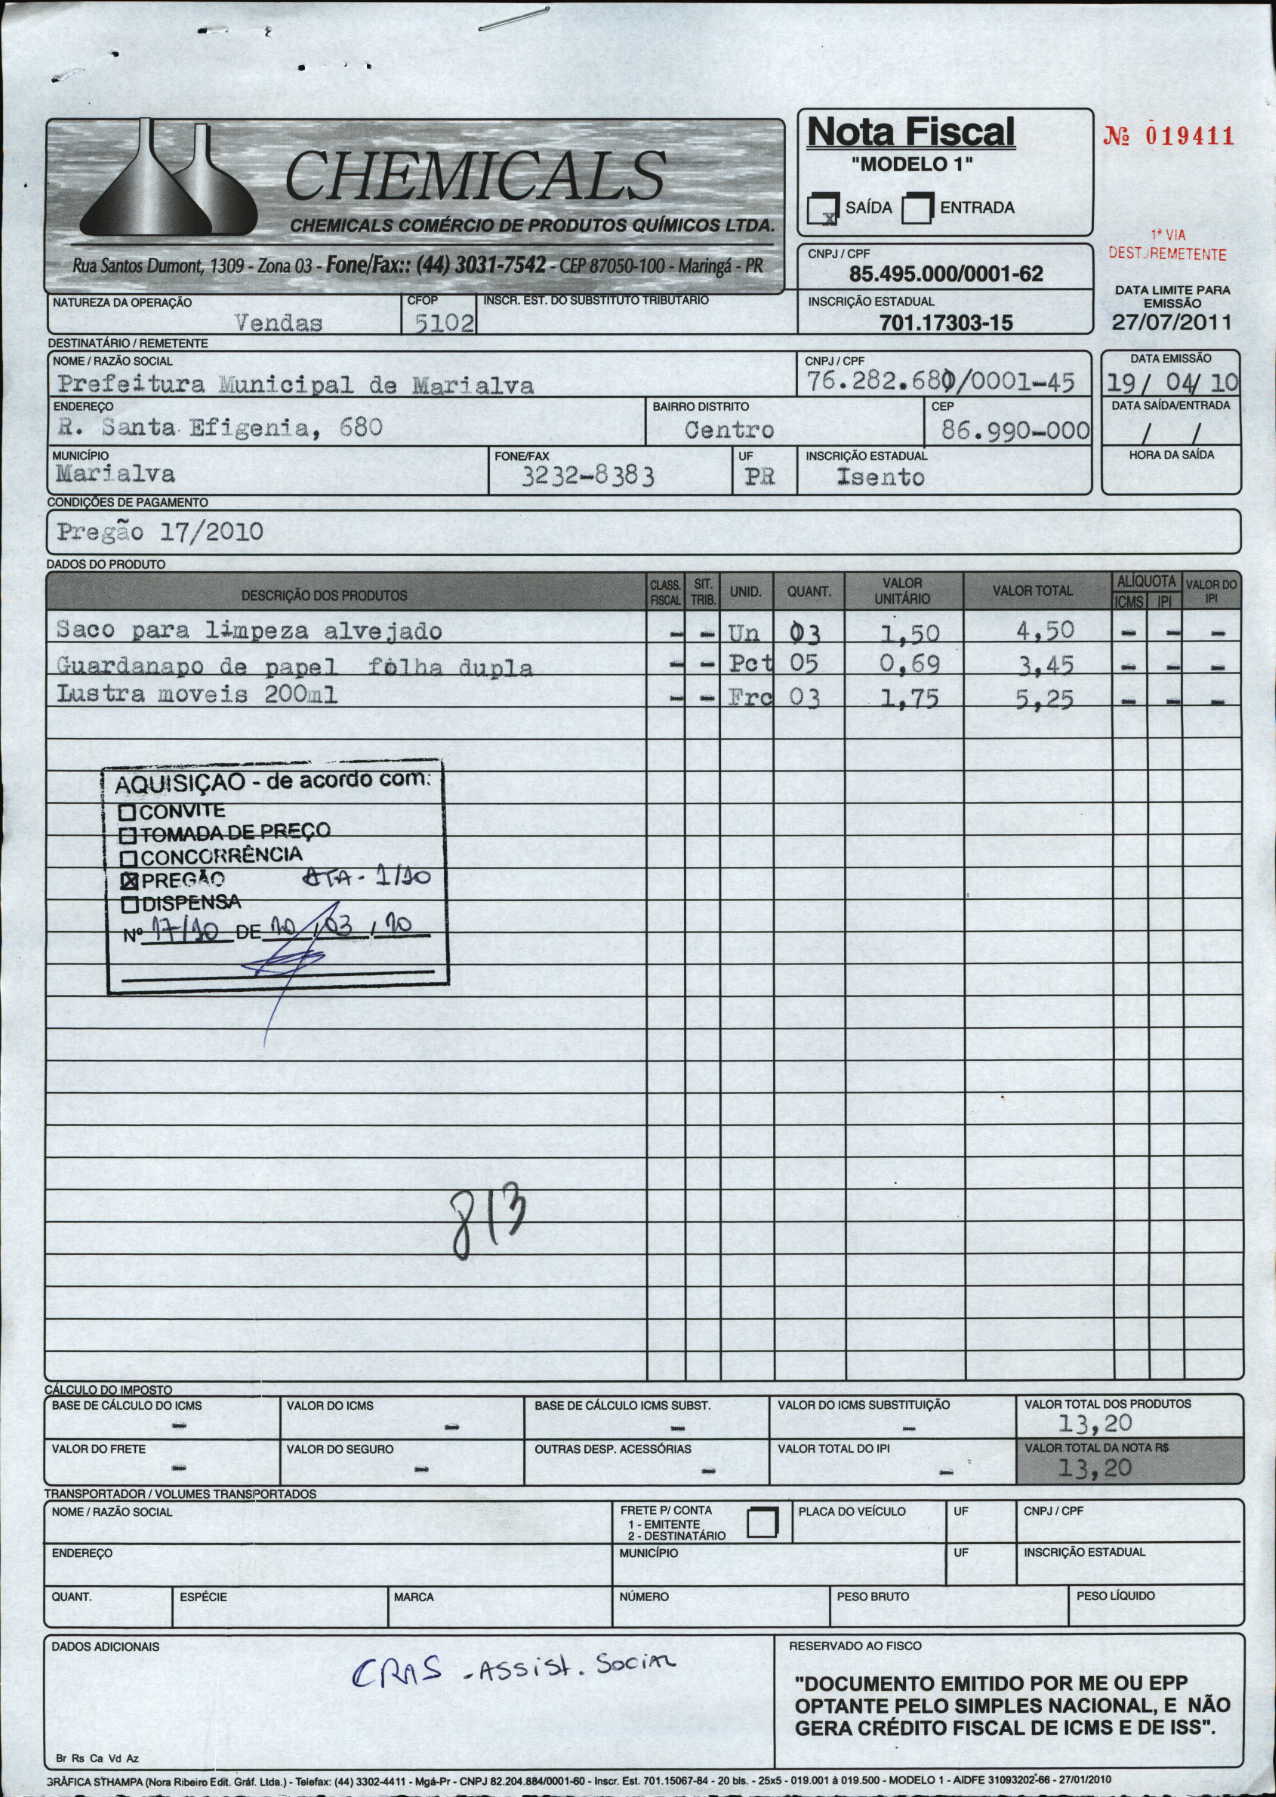 CHEMICALS
CHEMICALS COMÉRCIO DE PRODUTOS QUÍMICOS LTDA.
Rua Santos Dumont, 1309 - Zona 03 - Fone/Fax:: (44) 3031-7542 - CEP 87050-100 - Maringá - PR
Nota Fiscal
"MODELO 1"
X SAÍDA ENTRADA
Nº 019411
1ª VIA
DEST./REMETENTE
CNPJ / CPF
85.495.000/0001-62
DATA LIMITE PARA
EMISSÃO
27/07/2011
NATUREZA DA OPERAÇÃO CFOP INSCR. EST. DO SUBSTITUTO TRIBUTÁRIO INSCRIÇÃO ESTADUAL
Vendas 5102 701.17303-15
DESTINATÁRIO / REMETENTE
NOME / RAZÃO SOCIAL CNPJ / CPF DATA EMISSÃO
Prefeitura Municipal de Marialva 76.282.680/0001-45 19/ 04/ 10
ENDEREÇO BAIRRO DISTRITO CEP DATA SAÍDA/ENTRADA
R. Santa Efigenia, 680 Centro 86.990-000 / /
MUNICÍPIO FONE/FAX UF INSCRIÇÃO ESTADUAL HORA DA SAÍDA
Marialva 3232-8383 PR Isento
CONDIÇÕES DE PAGAMENTO
Pregão 17/2010
DADOS DO PRODUTO
DESCRIÇÃO DOS PRODUTOS CLASS. FISCAL SIT. TRIB. UNID. QUANT. VALOR UNITÁRIO VALOR TOTAL ALÍQUOTA ICMS IPI VALOR DO IPI
Saco para limpeza alvejado - - Un 03 1,50 4,50 - - -
Guardanapo de papel folha dupla - - Pct 05 0,69 3,45 - - -
Lustra moveis 200ml - - Frc 03 1,75 5,25 - - -
AQUISIÇÃO - de acordo com:
CONVITE
TOMADA DE PREÇO
CONCORRÊNCIA
X PREGÃO ATA - 1/10
DISPENSA
Nº 17/10 DE 10 / 03 / 10
813
CÁLCULO DO IMPOSTO
BASE DE CÁLCULO DO ICMS VALOR DO ICMS BASE DE CÁLCULO ICMS SUBST. VALOR DO ICMS SUBSTITUIÇÃO VALOR TOTAL DOS PRODUTOS
- - - - 13,20
VALOR DO FRETE VALOR DO SEGURO OUTRAS DESP. ACESSÓRIAS VALOR TOTAL DO IPI VALOR TOTAL DA NOTA R$
- - - - 13,20
TRANSPORTADOR / VOLUMES TRANSPORTADOS
NOME / RAZÃO SOCIAL FRETE P/ CONTA PLACA DO VEÍCULO UF CNPJ / CPF
1 - EMITENTE
2 - DESTINATÁRIO
ENDEREÇO MUNICÍPIO UF INSCRIÇÃO ESTADUAL
QUANT. ESPÉCIE MARCA NÚMERO PESO BRUTO PESO LÍQUIDO
DADOS ADICIONAIS RESERVADO AO FISCO
CRAS - ASSIST. SOCIAL
"DOCUMENTO EMITIDO POR ME OU EPP
OPTANTE PELO SIMPLES NACIONAL, E NÃO
GERA CRÉDITO FISCAL DE ICMS E DE ISS".
Br Rs Ca Vd Az
GRÁFICA STHAMPA (Nora Ribeiro Edit. Gráf. Ltda.) - Telefax: (44) 3302-4411 - Mgá-Pr - CNPJ 82.204.884/0001-60 - Inscr. Est. 701.15067-84 - 20 bls. - 25x5 - 019.001 à 019.500 - MODELO 1 - AIDFE 31093202-66 - 27/01/2010